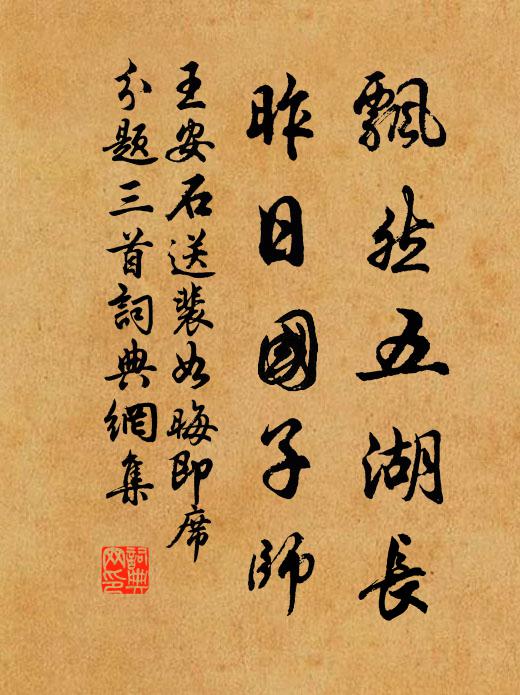 飄然五湖長
昨日國子師
王安石送裴如晦即席
分題三首詞典網集
詞典網印